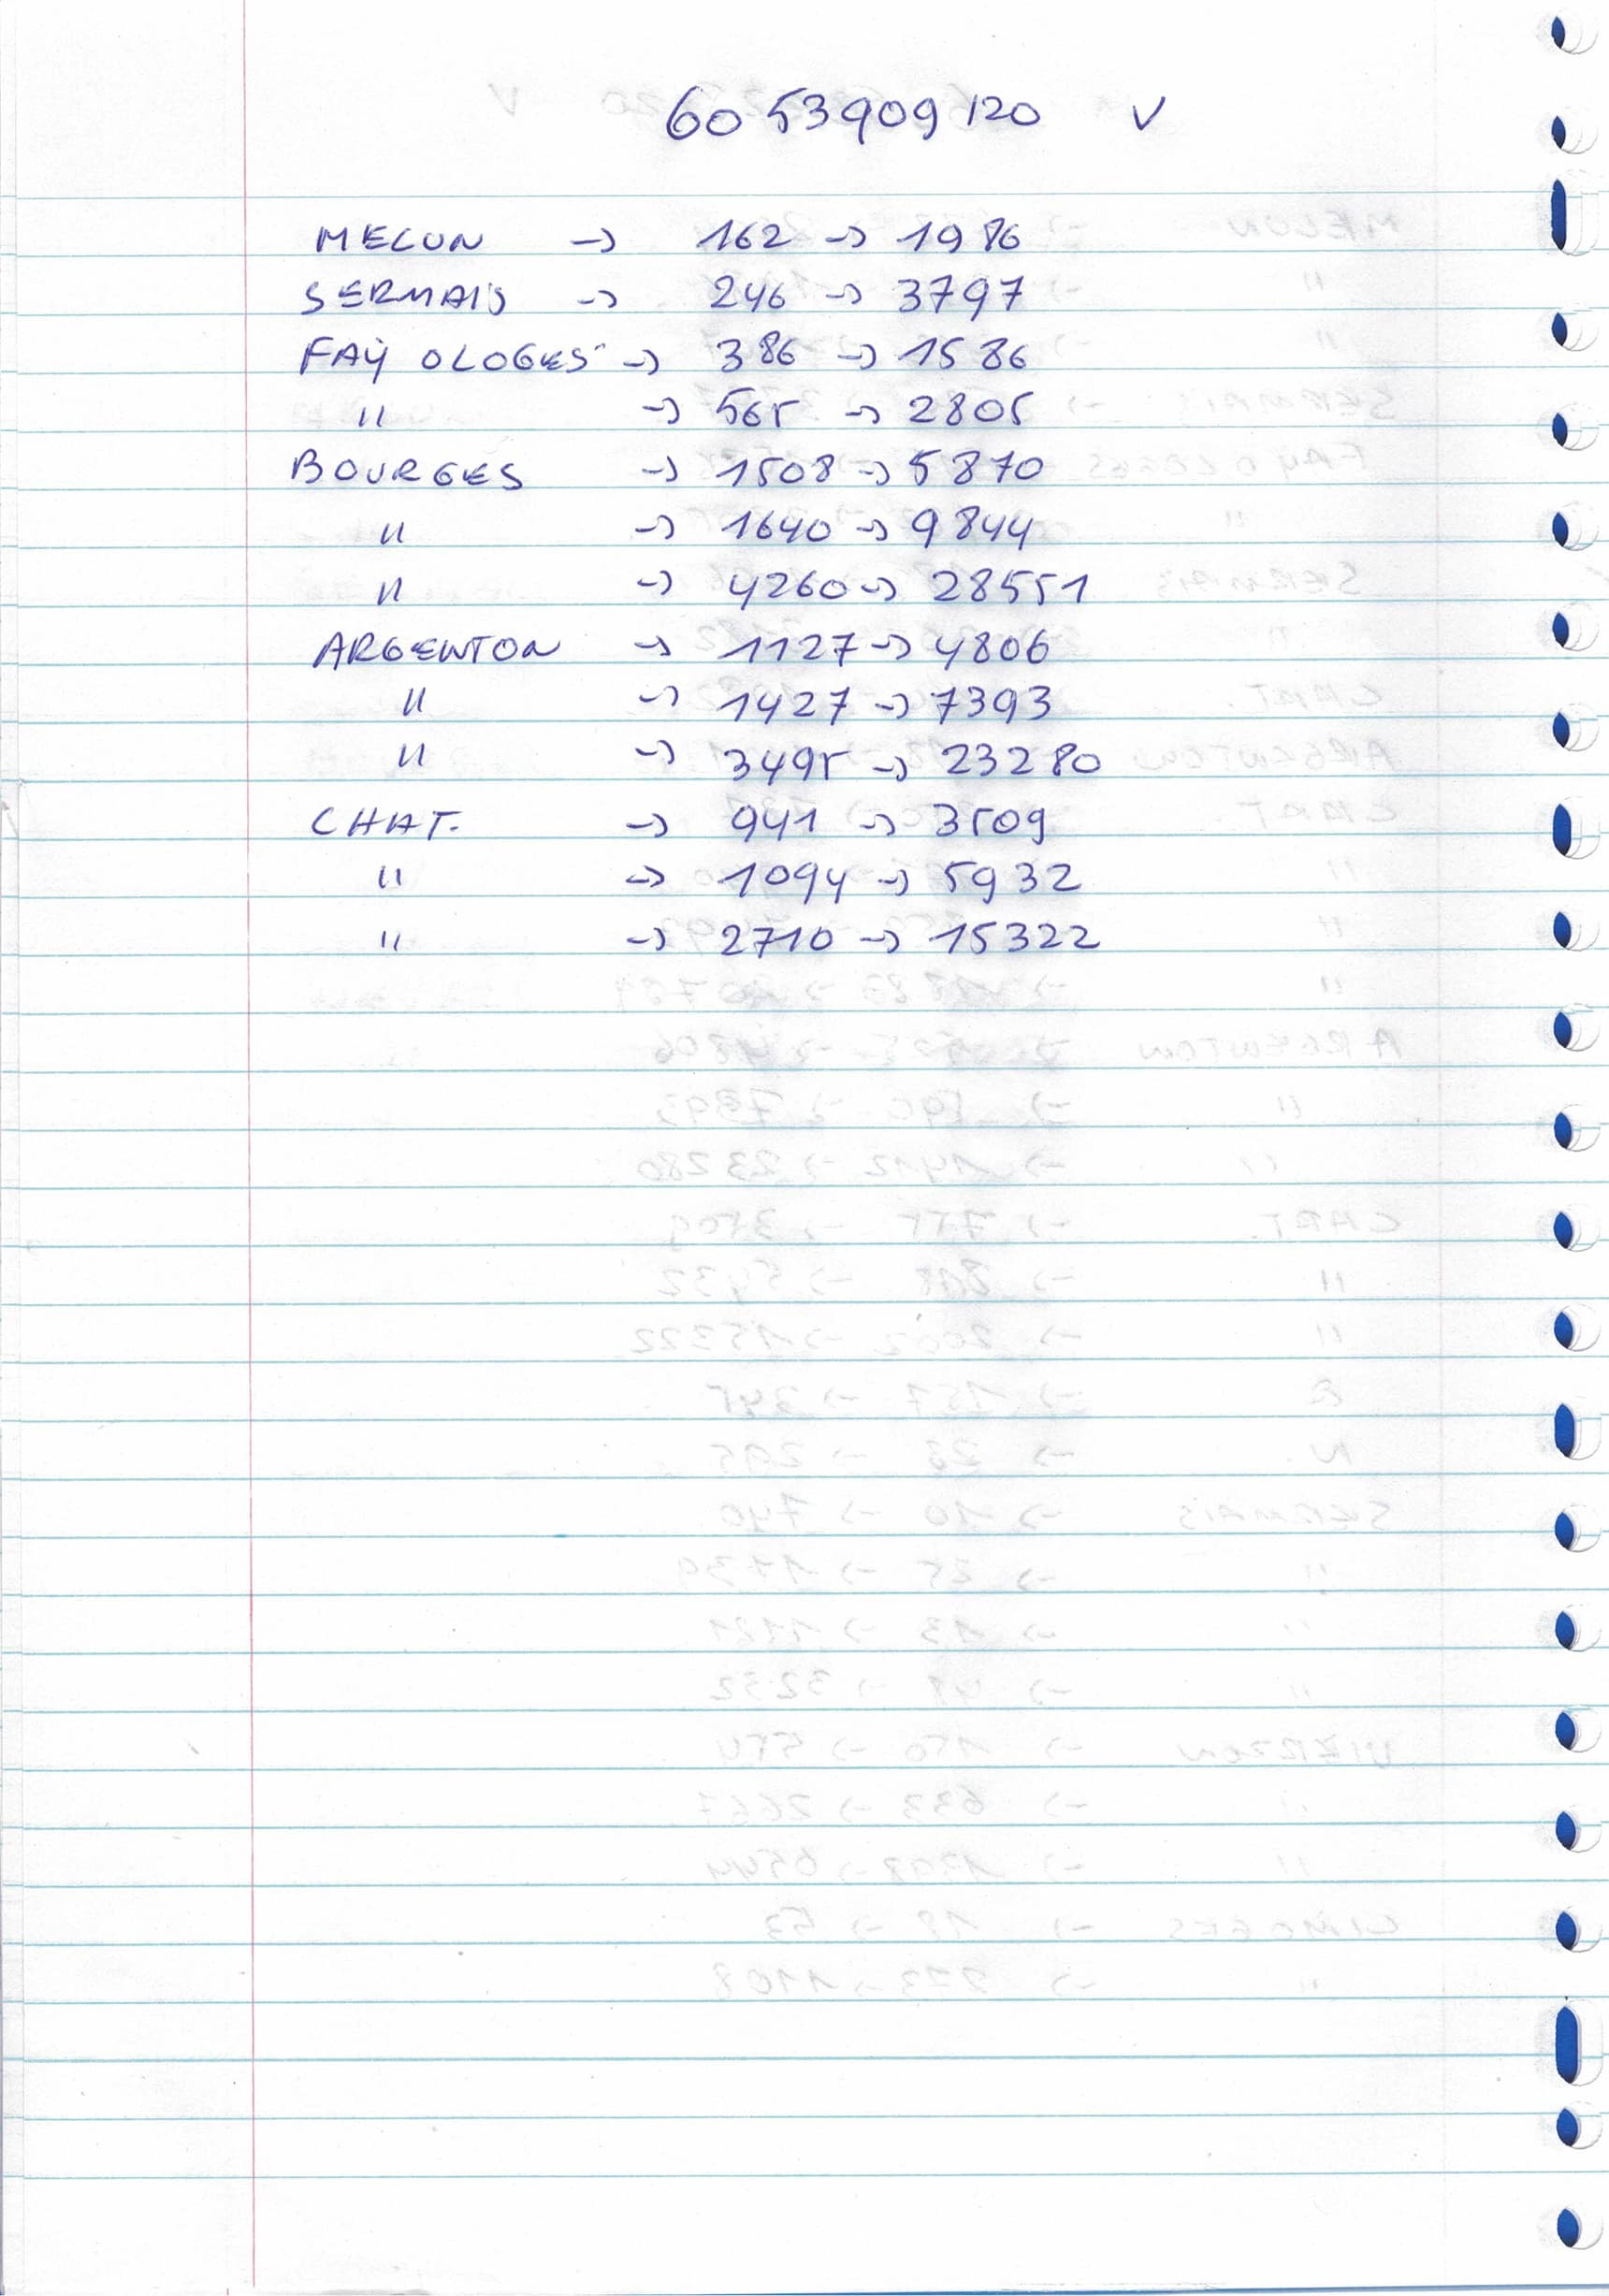 60 53909120 V
MELUN -> 162 -> 1986
SERMAIS -> 246 -> 3797
FAY OLOGES -> 386 -> 1586
" -> 565 -> 2805
BOURGES -> 1508 -> 5870
" -> 1640 -> 9844
" -> 4260 -> 28551
ARGENTON -> 1127 -> 4806
" -> 1427 -> 7393
" -> 3495 -> 23280
CHAT. -> 941 -> 3509
" -> 1094 -> 5932
" -> 2710 -> 15322